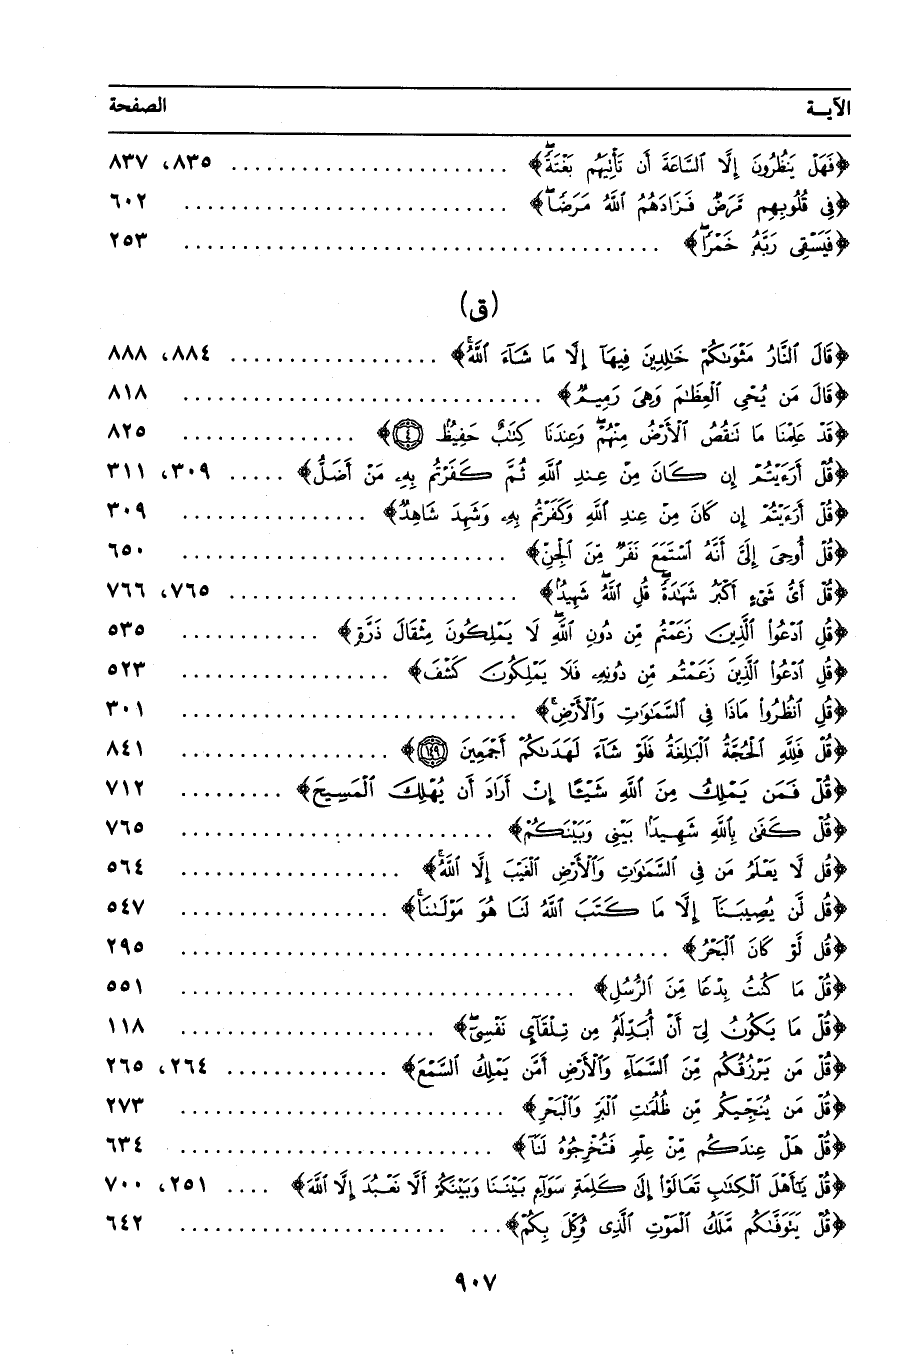 الآيــة الصفحة
﴿فَهَلْ يَنظُرُونَ إِلَّا ٱلسَّاعَةَ أَن تَأْتِيَهُم بَغْتَةً﴾ ........................ ٨٣٥، ٨٣٧
﴿فِى قُلُوبِهِم مَّرَضٌ فَزَادَهُمُ ٱللَّهُ مَرَضًا﴾ ............................ ٦٠٢
﴿فَيَسْقِى رَبَّهُۥ خَمْرًا﴾ ......................................... ٢٥٣
(ق)
﴿قَالَ ٱلنَّارُ مَثْوَىٰكُمْ خَٰلِدِينَ فِيهَآ إِلَّا مَا شَآءَ ٱللَّهُ﴾ .................. ٨٨٤، ٨٨٨
﴿قَالَ مَن يُحْىِ ٱلْعِظَٰمَ وَهِىَ رَمِيمٌ﴾ ............................... ٨١٨
﴿قَدْ عَلِمْنَا مَا تَنقُصُ ٱلْأَرْضُ مِنْهُمْ وَعِندَنَا كِتَٰبٌ حَفِيظٌۢ ٤﴾ ............... ٨٢٥
﴿قُلْ أَرَءَيْتُمْ إِن كَانَ مِنْ عِندِ ٱللَّهِ ثُمَّ كَفَرْتُم بِهِۦ مَنْ أَضَلُّ﴾ ..... ٣٠٩، ٣١١
﴿قُلْ أَرَءَيْتُمْ إِن كَانَ مِنْ عِندِ ٱللَّهِ وَكَفَرْتُم بِهِۦ وَشَهِدَ شَاهِدٌ﴾ ................ ٣٠٩
﴿قُلْ أُوحِىَ إِلَىَّ أَنَّهُ ٱسْتَمَعَ نَفَرٌ مِّنَ ٱلْجِنِّ﴾ ............................ ٦٥٠
﴿قُلْ أَىُّ شَىْءٍ أَكْبَرُ شَهَٰدَةً قُلِ ٱللَّهُ شَهِيدٌۢ﴾ ......................... ٧٦٥، ٧٦٦
﴿قُلِ ٱدْعُوا۟ ٱلَّذِينَ زَعَمْتُم مِّن دُونِ ٱللَّهِ لَا يَمْلِكُونَ مِثْقَالَ ذَرَّةٍ﴾ ............ ٥٣٥
﴿قُلِ ٱدْعُوا۟ ٱلَّذِينَ زَعَمْتُم مِّن دُونِهِۦ فَلَا يَمْلِكُونَ كَشْفَ﴾ .................. ٥٢٣
﴿قُلِ ٱنظُرُوا۟ مَاذَا فِى ٱلسَّمَٰوَٰتِ وَٱلْأَرْضِ﴾ ............................. ٣٠١
﴿قُلْ فَلِلَّهِ ٱلْحُجَّةُ ٱلْبَٰلِغَةُ فَلَوْ شَآءَ لَهَدَىٰكُمْ أَجْمَعِينَ ١٤٩﴾ .................. ٨٤١
﴿قُلْ فَمَن يَمْلِكُ مِنَ ٱللَّهِ شَيْـًٔا إِنْ أَرَادَ أَن يُهْلِكَ ٱلْمَسِيحَ﴾ ......... ٧١٢
﴿قُلْ كَفَىٰ بِٱللَّهِ شَهِيدًۢا بَيْنِى وَبَيْنَكُمْ﴾ ........................... ٧٦٥
﴿قُل لَّا يَعْلَمُ مَن فِى ٱلسَّمَٰوَٰتِ وَٱلْأَرْضِ ٱلْغَيْبَ إِلَّا ٱللَّهُ﴾ ................... ٥٦٤
﴿قُل لَّن يُصِيبَنَآ إِلَّا مَا كَتَبَ ٱللَّهُ لَنَا هُوَ مَوْلَىٰنَا﴾ .................. ٥٤٧
﴿قُل لَّوْ كَانَ ٱلْبَحْرُ﴾ .......................................... ٢٩٥
﴿قُلْ مَا كُنتُ بِدْعًا مِّنَ ٱلرُّسُلِ﴾ .................................. ٥٥١
﴿قُلْ مَا يَكُونُ لِىٓ أَنْ أُبَدِّلَهُۥ مِن تِلْقَآئِ نَفْسِىٓ﴾ ...................... ١١٨
﴿قُلْ مَن يَرْزُقُكُم مِّنَ ٱلسَّمَآءِ وَٱلْأَرْضِ أَمَّن يَمْلِكُ ٱلسَّمْعَ﴾ .............. ٢٦٤، ٢٦٥
﴿قُلْ مَن يُنَجِّيكُم مِّن ظُلُمَٰتِ ٱلْبَرِّ وَٱلْبَحْرِ﴾ ............................ ٢٧٣
﴿قُلْ هَلْ عِندَكُم مِّنْ عِلْمٍ فَتُخْرِجُوهُ لَنَآ﴾ ........................... ٦٣٤
﴿قُلْ يَٰٓأَهْلَ ٱلْكِتَٰبِ تَعَالَوْا۟ إِلَىٰ كَلِمَةٍ سَوَآءٍۭ بَيْنَنَا وَبَيْنَكُمْ أَلَّا نَعْبُدَ إِلَّا ٱللَّهَ﴾ .... ٢٥١، ٧٠٠
﴿قُلْ يَتَوَفَّىٰكُم مَّلَكُ ٱلْمَوْتِ ٱلَّذِى وُكِّلَ بِكُمْ﴾ .......................... ٦٤٢
٩٠٧